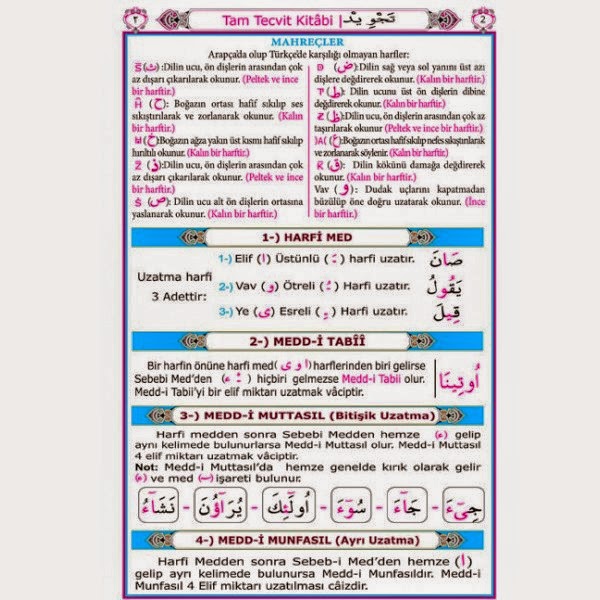 ٢ Tam Tecvit Kitâbi | تَجْوِيدْ 2
MAHREÇLER
Arapça'da olup Türkçe'de karşılığı olmayan harfler:
(ث): Dilin ucu, ön dişlerin arasından çok
az dışarı çıkarılarak okunur. (Peltek ve ince
bir harftir.)
(ح): Boğazın ortası hafif sıkılıp ses
sıkıştırılarak ve zorlanarak okunur. (Kalın
bir harftir.)
(خ): Boğazın ağza yakın üst kısmı hafif sıkılıp
hırıltılı okunur. (Kalın bir harftir.)
(ذ): Dilin ucu, ön dişlerin arasından çok
az dışarı çıkarılarak okunur. (Peltek ve ince
bir harftir.)
(ص): Dilin ucu alt ön dişlerin ortasına
yaslanarak okunur. (Kalın bir harftir.)
(ض): Dilin sağ veya sol yanını üst azı
dişlere değdirerek okunur. (Kalın bir harftir.)
(ط): Dilin ucunu üst ön dişlerin dibine
değdirerek okunur. (Kalın bir harftir.)
(ظ): Dilin ucu, ön dişlerin arasından çok az
taşırılarak okunur (Peltek ve kalın bir harftir.)
(ع): Boğazın ortası hafif sıkılıp nefes sıkıştırılarak
ve zorlanarak söylenir. (Kalın bir harftir.)
(ق): Dilin kökünü damağa değdirerek
okunur. (Kalın bir harftir.)
Vav (و): Dudak uçlarını kapatmadan
büzülüp öne doğru uzatarak okunur. (İnce
bir harftir.)
1-) HARFİ MED
Uzatma harfi
3 Adettir:
1-) Elif (ا) Üstünlü (َ) harfi uzatır. صَانَ
2-) Vav (و) Ötreli (ُ) Harfi uzatır. يَقُولُ
3-) Ye (ى) Esreli (ِ) Harfi uzatır. قِيلَ
2-) MEDD-İ TABİÎ
Bir harfin önüne harfi med (ا و ى) harflerinden biri gelirse
Sebebi Med'den (ء ْ) hiçbiri gelmezse Medd-i Tabii olur.
Medd-i Tabii'yi bir elif miktarı uzatmak vâciptir.
اُوتِينَا
3-) MEDD-İ MUTTASIL (Bitişik Uzatma)
Harfi medden sonra Sebebi Medden hemze (ء) gelip
aynı kelimede bulunurlarsa Medd-i Muttasıl olur. Medd-i Muttasıl
4 elif miktarı uzatmak vâciptir.
Not: Medd-i Muttasıl'da hemze genelde kırık olarak gelir
(ء) ve med (ٓ) işareti bulunur.
جِىٓءَ - جَٓاءَ - سُٓوءَ - اُولٰٓئِكَ - يُرَٓاؤُنَ - نَشَٓاءُ
4-) MEDD-İ MUNFASIL (Ayrı Uzatma)
Harfi Medden sonra Sebeb-i Med'den hemze (ا)
gelip ayrı kelimede bulunursa Medd-i Munfasıldır. Medd-i
Munfasıl 4 Elif miktarı uzatılması câizdir.